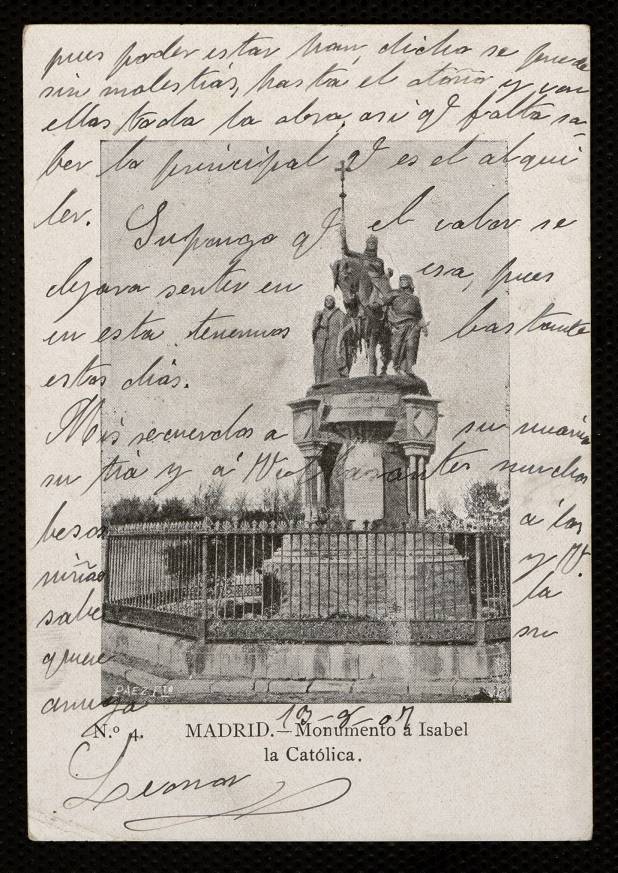 pues poder estar han dicho se puede
sin molestias, hasta el otoño y van
ellas toda la obra, asi qe falta sa-
ber la principal qe es el alqui
ler.
Supongo qe el calor se
dejara sentir en esa, pues
en esta tenemos bastante
estos dias.
Mis recuerdos a su mamá
su tia y á muchos
besos á las
niñas y V.
sabe la
quiere su
amiga
PAEZ, Fto
13-8-07
N.º 4. MADRID.—Monumento á Isabel
la Católica.
Leonor